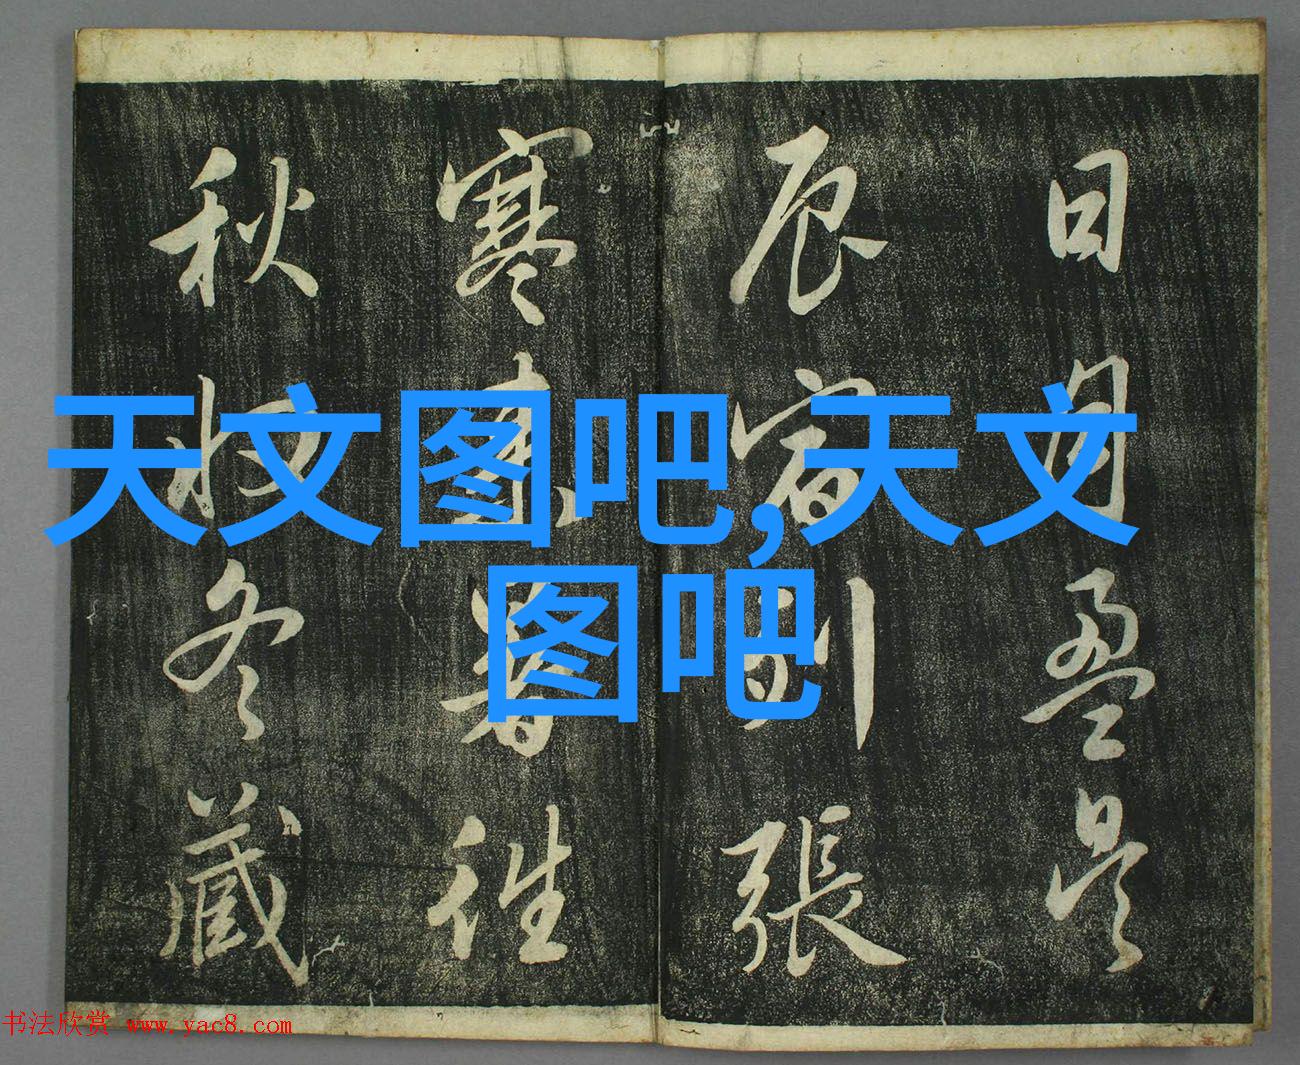 日月盈昃
辰宿列張
寒来暑往
秋收冬藏
天文图吧,天文
图吧
书法欣赏 www.yac8.com